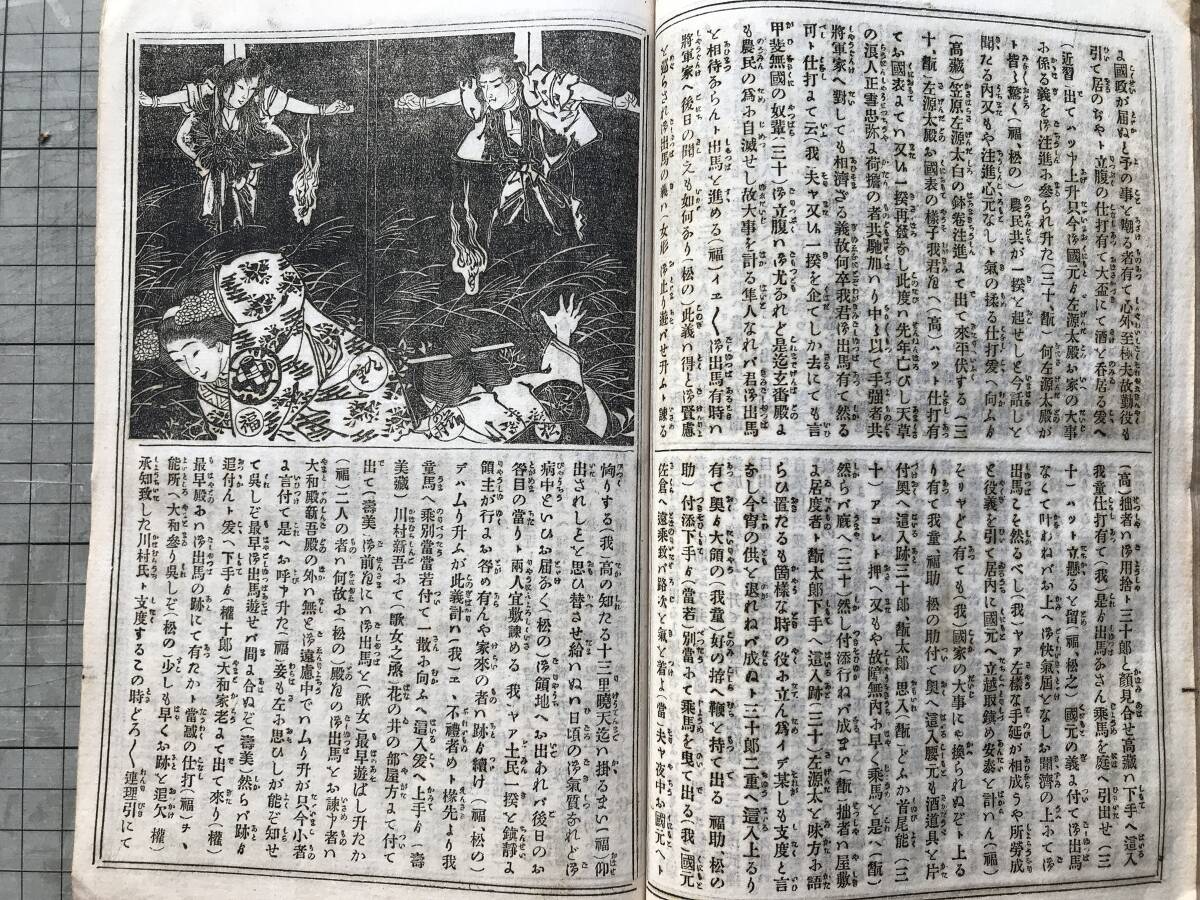 よ國政が屆ぬと予の事と嘲る者有て心外至極夫故勤役も
引て居のぢやト立腹の仕打有て大盃にて酒と呑居る爰へ
(近習)出てハッ申上升只今御國元ゟ左源太殿お家の大事
お係る義を御注進お參られ升た(三十、翫)何左源太殿が
ト皆々驚く(福、松の)農民共が一揆と起せしと今話しと
聞たる內又もや注進心元なしト氣の揉る仕打爰へ向ふゟ
(高藏)笠原左源太白の鉢卷注進よて出て來平伏する(三
十、翫)左源太殿お國表の樣子我君へ(高)ハット仕打有
てお國表よてハ又ハ一揆再發をし此度ハ先年亡びし天草
の浪人正雪忠弥よ荷擔の者共馳加ハり中々以て手強者共
將軍家へ對しても相濟ざる義故何卒我君御出馬有て然る
可ト仕打よて云(我)夫ヤ又ハ一揆を企てしか去にても言
甲斐無國の奴輩(三十)御立腹ハ御尤あれど是迄玄番殿よ
も農民の爲お自滅せし故大事を計る隼人なれバ君御出馬
と相待あらんト出馬と進める(福)イエ〱御出馬有時ハ
將軍家へ後日の聞えも如何あり(松の)此義ハ得と賢慮
(高藏)拙者ハ御用捨ト三十郎と顏見合せ高藏ハ下手へ這入
我童仕打有て(我)是ゟ出馬あさん乘馬を庭へ引出せ(三
十)ハット立懸ると留(福、松之)國元の義よ付て御出馬
なくて叶わねバお上へ御快氣屆となしお聞濟の上ふて御
出馬こそ然るべし(我)ヤア左樣な手延が相成うや所勞成
と役義を引て居內に國元へ立越取鎭め安泰と計いん(福)
そりやどふ有ても(我)國家の大事にや換られぬぞト上る
り有て我童 福助 松の助付て奧へ這入腰元も酒道具と片
付奧へ這入跡三十郎、翫太郎 思入(翫)どふか首尾能(三
十)アコレト押へ又もや故障無內お早く乘馬と是へ(翫)
然らバ廐へ(三十)然し付添行ねバ成まい(翫)拙者ハ屋敷
よ居度者ト翫太郎下手へ這入跡(三十)左源太と味方お語
らひ置たるも箇樣な時の役お立ん爲イデ某しも支度と言
をし今宵の供と退れねバ成ぬト三十郎二重へ這入上るり
有て奧ゟ大領の(我童)好の拵へ鞭と持て出る 福助、松の
助)付添下手ゟ(當若)別當ふて乘馬を曳て出る(我)國元
佐倉へ遠乘致バ路次と氣と着よ(當)夫ヤ夜中お國元へト
恟りする(我)高の知たる十三里曉天迄ハ掛るまい(福)仰
出されしとと思ひ替させ給いぬハ日頃の御氣質あれど御
病中といひお屆あく(松の)御領地へお出あれバ後日のお
咎目の當りト兩人宜敷諫める(我)ヤア土民一揆と鎭靜よ
領主が行よお咎め有んや家來の者ハ跡ゟ續け(福、松の)
デハムり升ふが此義計ハ(我)エ、不禮者めト椽先より我
童馬へ乘別當當若付て一散お向ふへ這入爰へ上手ゟ(壽
美藏)川村新吾ふて(歌女之丞)花の井の部屋方よて付て
出て(壽美)御前にハ御出馬と(歌女)最早遊ばし升たか
(福)二人の者ハ何故お(松の)殿の御出馬とお諫や者ハ
大和殿新吾殿の外ハ無と御遠慮中でハムり升が只今小者
よ言付て是へお呼や升た(福)妾も左ふ思ひしが能ぞ知せ
て吳しぞ最早御出馬遊せバ間よ合ぬぞ(壽美)然らバ跡ゟ
追付んト爰へ下手ゟ(權十郎)大和家老よて出て來り(權)
最早殿おハ御出馬の跡にて有たか、當惑の仕打(福)チヽ
能所へ大和參り吳しぞ(松の)少しも早くお跡と追欠(權)
承知致した川村氏ト支度するこの時どろ〱連理引にて
福